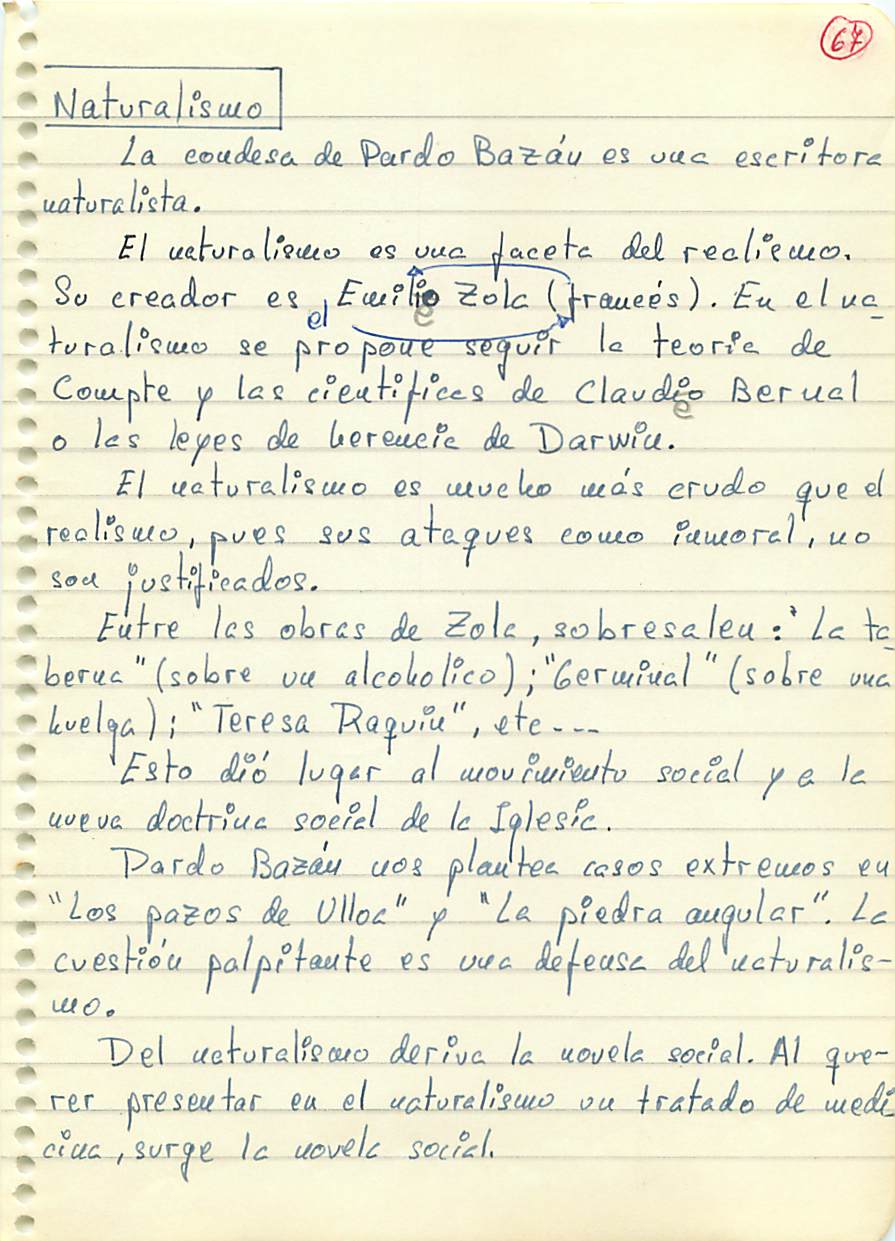 67
Naturalismo
La condesa de Pardo Bazán es una escritora
naturalista.
El naturalismo es una faceta del realismo.
Su creador es el Emilio Zola (francés). En el na
e
turalismo se propone seguir la teoria de
Compte y las cientificas de Claudio Bernal
e
o las leyes de herencia de Darwin.
El naturalismo es mucho más crudo que el
realismo, pues sus ataques como inmoral, no
son justificados.
Entre las obras de Zola, sobresalen: "La ta
berna" (sobre un alcoholico); "Germinal" (sobre una
huelga); "Teresa Raquin", etc...
Esto dió lugar al movimiento social y a la
nueva doctrina social de la Iglesia.
Pardo Bazán nos plantea casos extremos en
"Los pazos de Ulloa" y "La piedra angular". La
cuestión palpitante es una defensa del naturalis-
mo.
Del naturalismo deriva la novela social. Al que-
rer presentar en el naturalismo un tratado de medi
cina, surge la novela social.